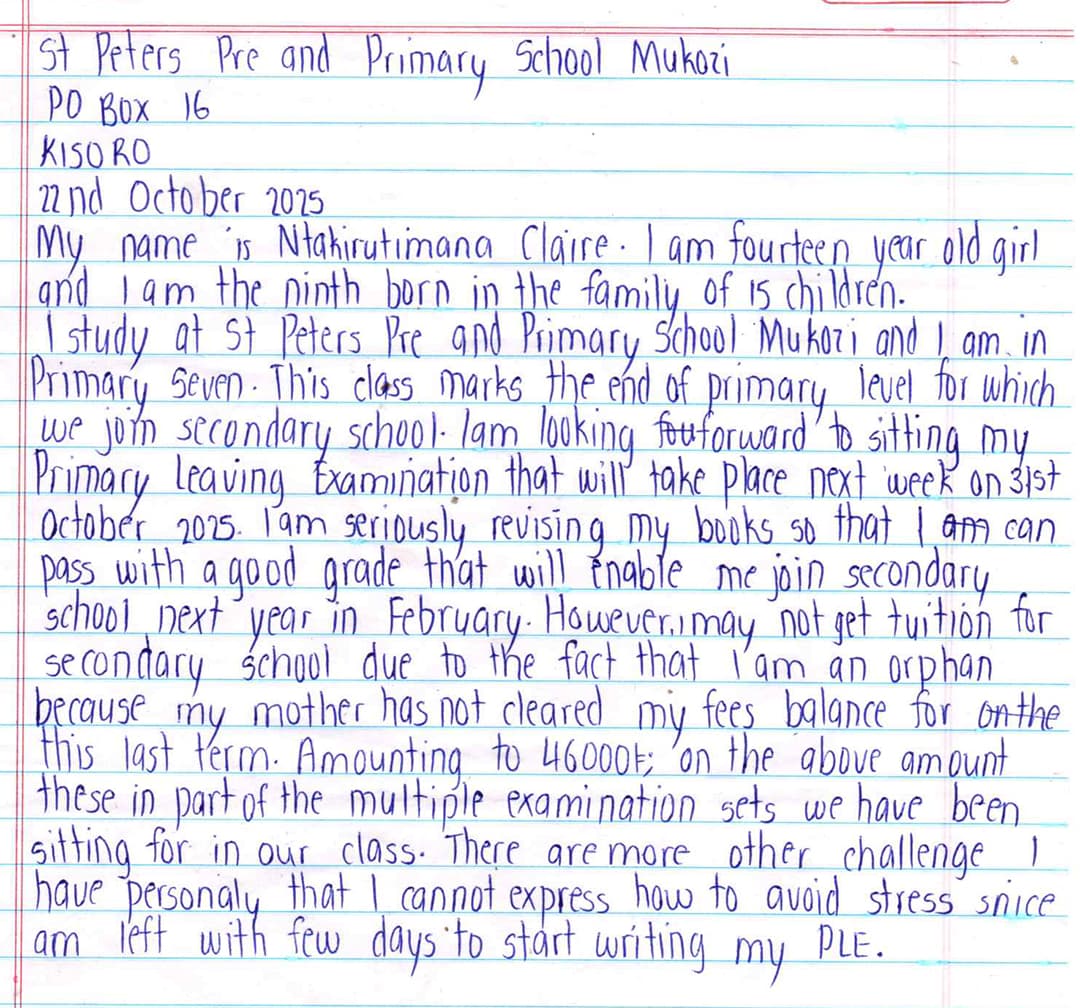 St Peters Pre and Primary School Mukozi
PO BOX 16
KISORO
22nd October 2025
My name is Ntakirutimana Claire. I am fourteen year old girl
and I am the ninth born in the family of 15 children.
I study at St Peters Pre and Primary School Mukozi and I am in
Primary Seven. This class marks the end of primary level for which
we join secondary school. Iam looking fouforward to sitting my
Primary Leaving Examination that will take place next week on 31st
October 2025. I'am seriously revising my books so that I am can
pass with a good grade that will enable me join secondary
school next year in February. However, I may not get tuition for
secondary school due to the fact that I'am an orphan
because my mother has not cleared my fees balance for on the
this last term. Amounting to 46000t; on the above amount
these in part of the multiple examination sets we have been
sitting for in our class. There are more other challenge I
have personaly that I cannot express how to avoid stress snice
am left with few days to start writing my PLE.